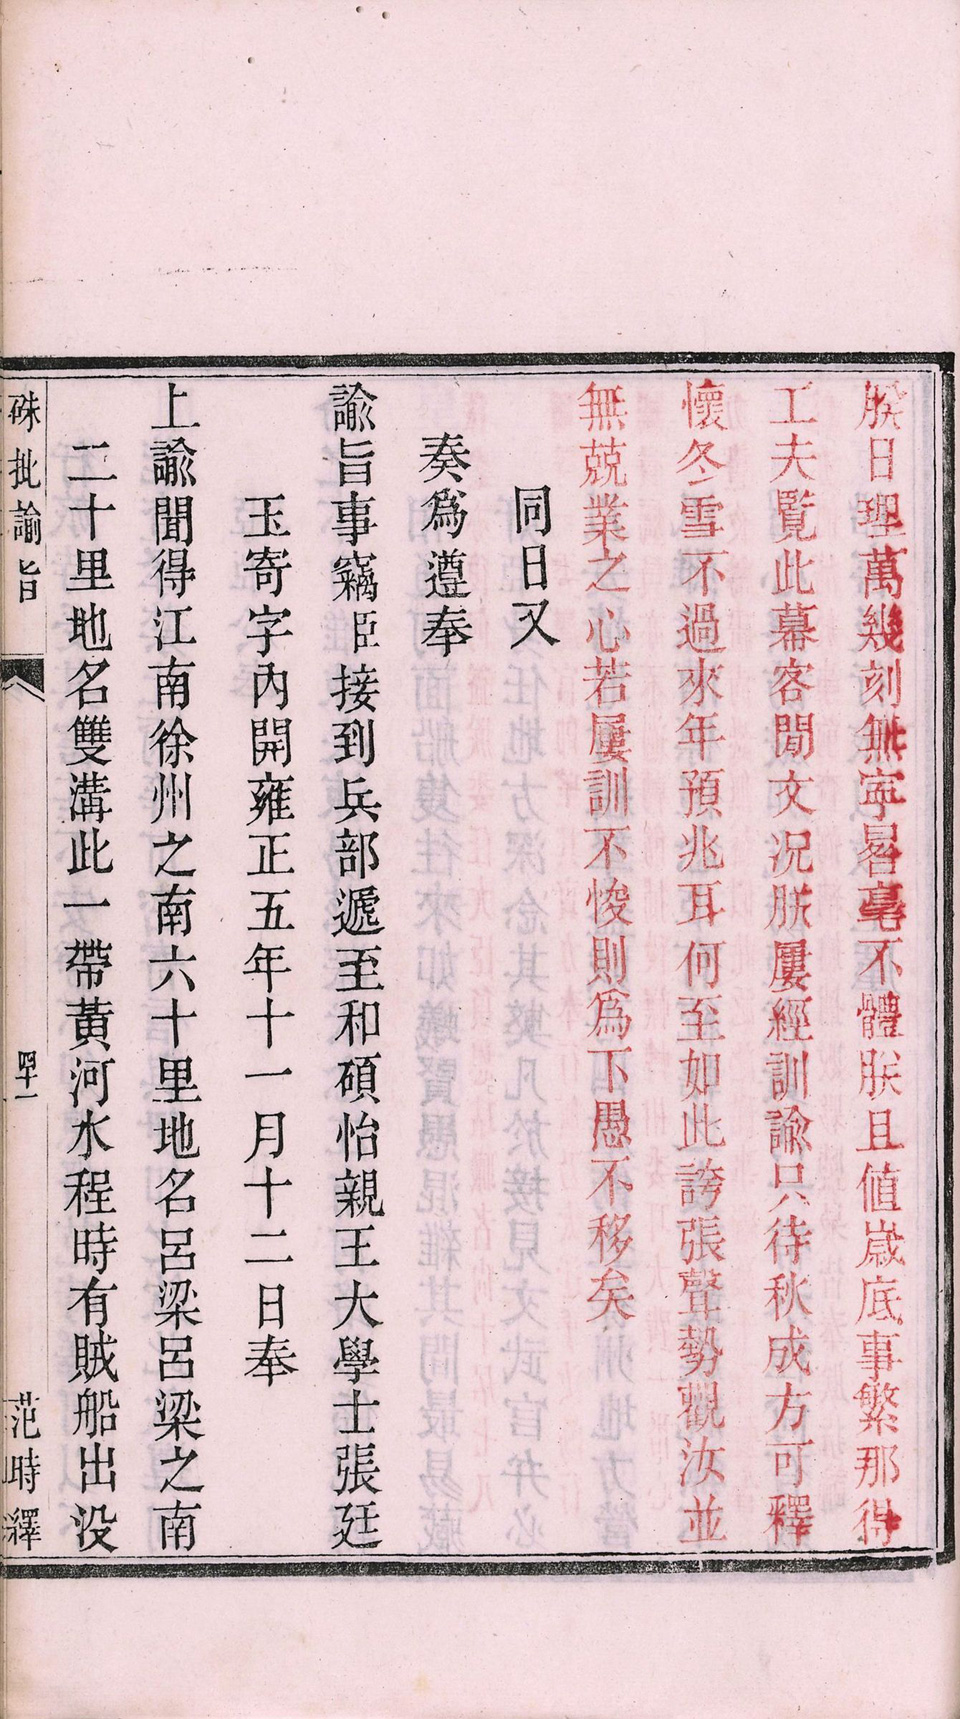 朕日理萬幾刻無寧晷毫不體朕且值嵗底事繁那得
工夫覽此幕客閒文況朕屢經訓諭只待秋成方可釋
懷冬雪不過來年預兆耳何至如此誇張聲勢觀汝並
無兢業之心若屢訓不悛則為下愚不移矣
同日又
奏為遵奉
諭旨事竊臣接到兵部遞至和碩怡親王大學士張廷
玉寄字內開雍正五年十一月十二日奉
上諭聞得江南徐州之南六十里地名呂梁呂梁之南
二十里地名雙溝此一帶黃河水程時有賊船出沒
硃批諭旨
四十一
范時繹